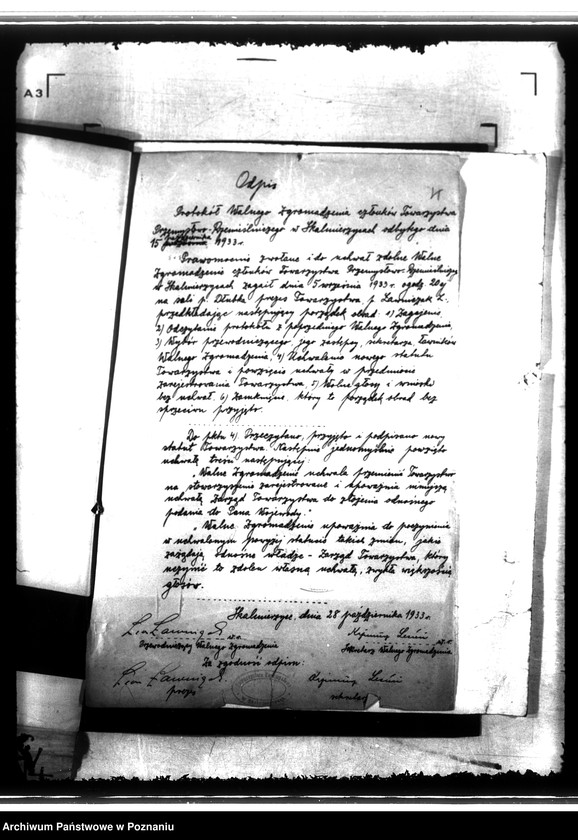 A3
Odpis
Protokół Walnego Zgromadzenia członków Towarzystwa
Przemysłow.-Rzemieślniczego w Skalmierzycach odbytego dnia
15 października 1933 r.
Prawomocnie zwołane i do uchwał zdolne Walne
Zgromadzenie członków Towarzystwa Przemysłowo-Rzemieślniczego
w Skalmierzycach zagaił dnia 5 września 1933 r. o godz. 20ej
na sali p. Dłubka prezes Towarzystwa, p. Ławniczak L.
przedkładając następujący porządek obrad: 1) Zagajenie,
2) Odczytanie protokołu z poprzedniego Walnego Zgromadzenia,
3) Wybór przewodniczącego, jego zastępcy, sekretarza, ławników
Walnego Zgromadzenia, 4) Uchwalenie nowego statutu
Towarzystwa i powzięcie uchwały w przedmiocie
zarejestrowania Towarzystwa, 5) Wolne głosy i wnioski
bez uchwał, 6) Zamknięcie, który to porządek obrad bez
sprzeciwu przyjęto.
Do pktu 4) Przeczytano, przyjęto i podpisano nowy
statut Towarzystwa. Następnie jednomyślnie powzięto
uchwałę treści następującej:
„Walne Zgromadzenie uchwala przemienić Towarzystwo
na stowarzyszenie zarejestrowane i upoważnia niniejszą
uchwałą Zarząd Towarzystwa do złożenia odnośnego
podania do Pana Wojewody."
„Walne Zgromadzenie upoważnia do poczynienia
w uchwalonym powyżej statucie takich zmian, jakie
zażądają odnośne władze - Zarząd Towarzystwa, który
uczynić to zdolen własną uchwałą, zwykłą większością
głosów.
Skalmierzyce, dnia 28 października 1933 r.
w.r. w.r.
Przewodniczący Walnego Zgromadzenia Sekretarz Walnego Zgromadzenia
Za zgodność odpisu:
prezes sekretarz
Archiwum Państwowe w Poznaniu